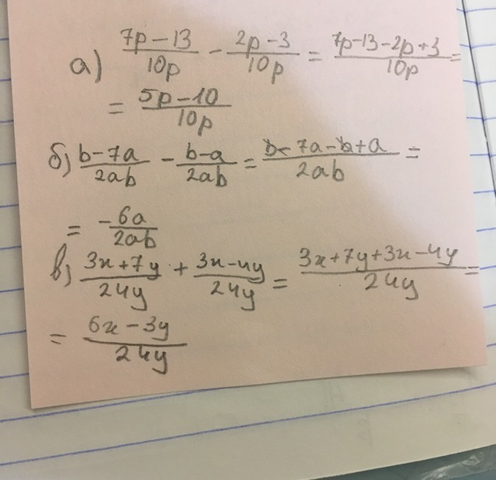 а) (7p-13)/(10p) - (2p-3)/(10p) = (7p-13-2p+3)/(10p) =
= (5p-10)/(10p)
б) (b-7a)/(2ab) - (b-a)/(2ab) = (b-7a-b+a)/(2ab) =
= (-6a)/(2ab)
в) (3x+7y)/(24y) + (3x-4y)/(24y) = (3x+7y+3x-4y)/(24y) =
= (6x-3y)/(24y)